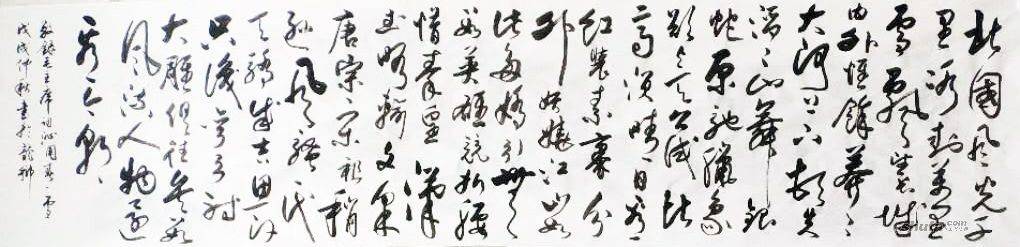 北國风光千
里冰封万里
雪飘望长城
内外惟餘莽〻
大河上下顿失
滔〻山舞銀
蛇原驰臘象
欲与天公试比
高须晴日看
红装素裹分
外妖娆江山如
此多娇引無
数英雄競折腰
惜秦皇漢
武略输文采
唐宗宋祖稍
逊风骚一代
天骄成吉思汗
只識弯弓射
大雕俱往矣数
风流人物还
看今朝
毛主席词沁園春雪
戊戌仲秋書於龍